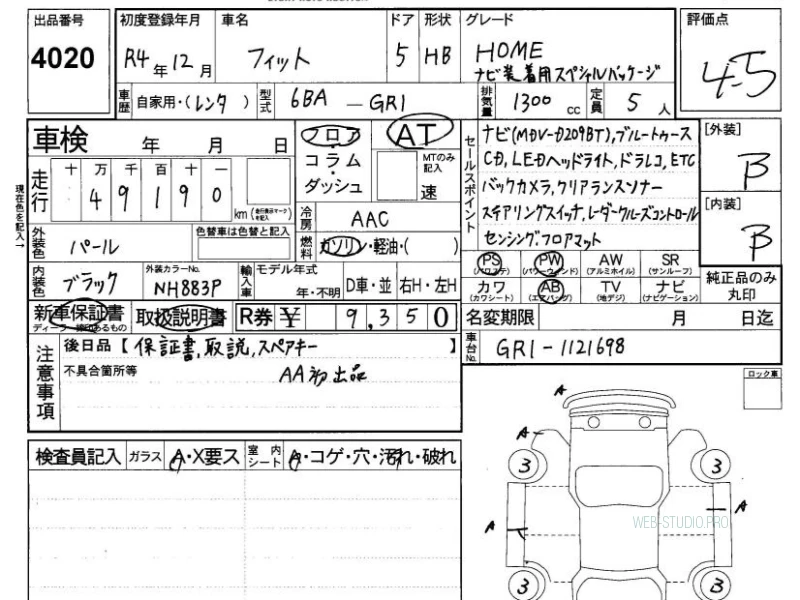 出品番号 初度登録年月 車名 ドア 形状 グレード 評価点
4020 R4年12月 フィット 5 HB HOME
ナビ装着用スペシャルパッケージ 4.5
車歴 自家用・(レンタ ) 型式 6BA-GR1 排気量 1300 cc 定員 5人
車検 年 月 日 フロア コラム・ダッシュ AT MTのみ記入 速
セールスポイント
ナビ(MDV-D209BT),ブルートゥース
CD,LEDヘッドライト,ドラレコ,ETC
バックカメラ,クリアランスソナー
ステアリングスイッチ,レーダークルーズコントロール
センシング,フロアマット
[外装] B
[内装] B
現在色を記入→
走行 十 万 千 百 十 一
4 9 1 9 0 km (走行表示マークを記入)
冷房 AAC
燃料 ガソリン・軽油・( )
外装色 パール 色替車は色替と記入
内装色 ブラック 外装カラーNo. NH883P 輸入車 モデル年式 年・不明 D車・並 右H・左H
PS (パワステ) PW (パワーウィンド) AW (アルミホイル) SR (サンルーフ)
カワ (カワシート) AB (エアバッグ) TV (地デジ) ナビ (ナビゲーション)
純正品のみ丸印
新車保証書 取扱説明書 R券 ¥ 9,350
名変期限 月 日迄
車台No. GR1-1121698
注意事項
後日品【保証書,取説,スペアキー 】
不具合箇所等 AA初出品
ロック車
検査員記入 ガラス A・X要ス 室内シート A・コゲ・穴・汚れ・破れ
A
A
3 3
A A
3 3
WEB-STUDIO.PRO